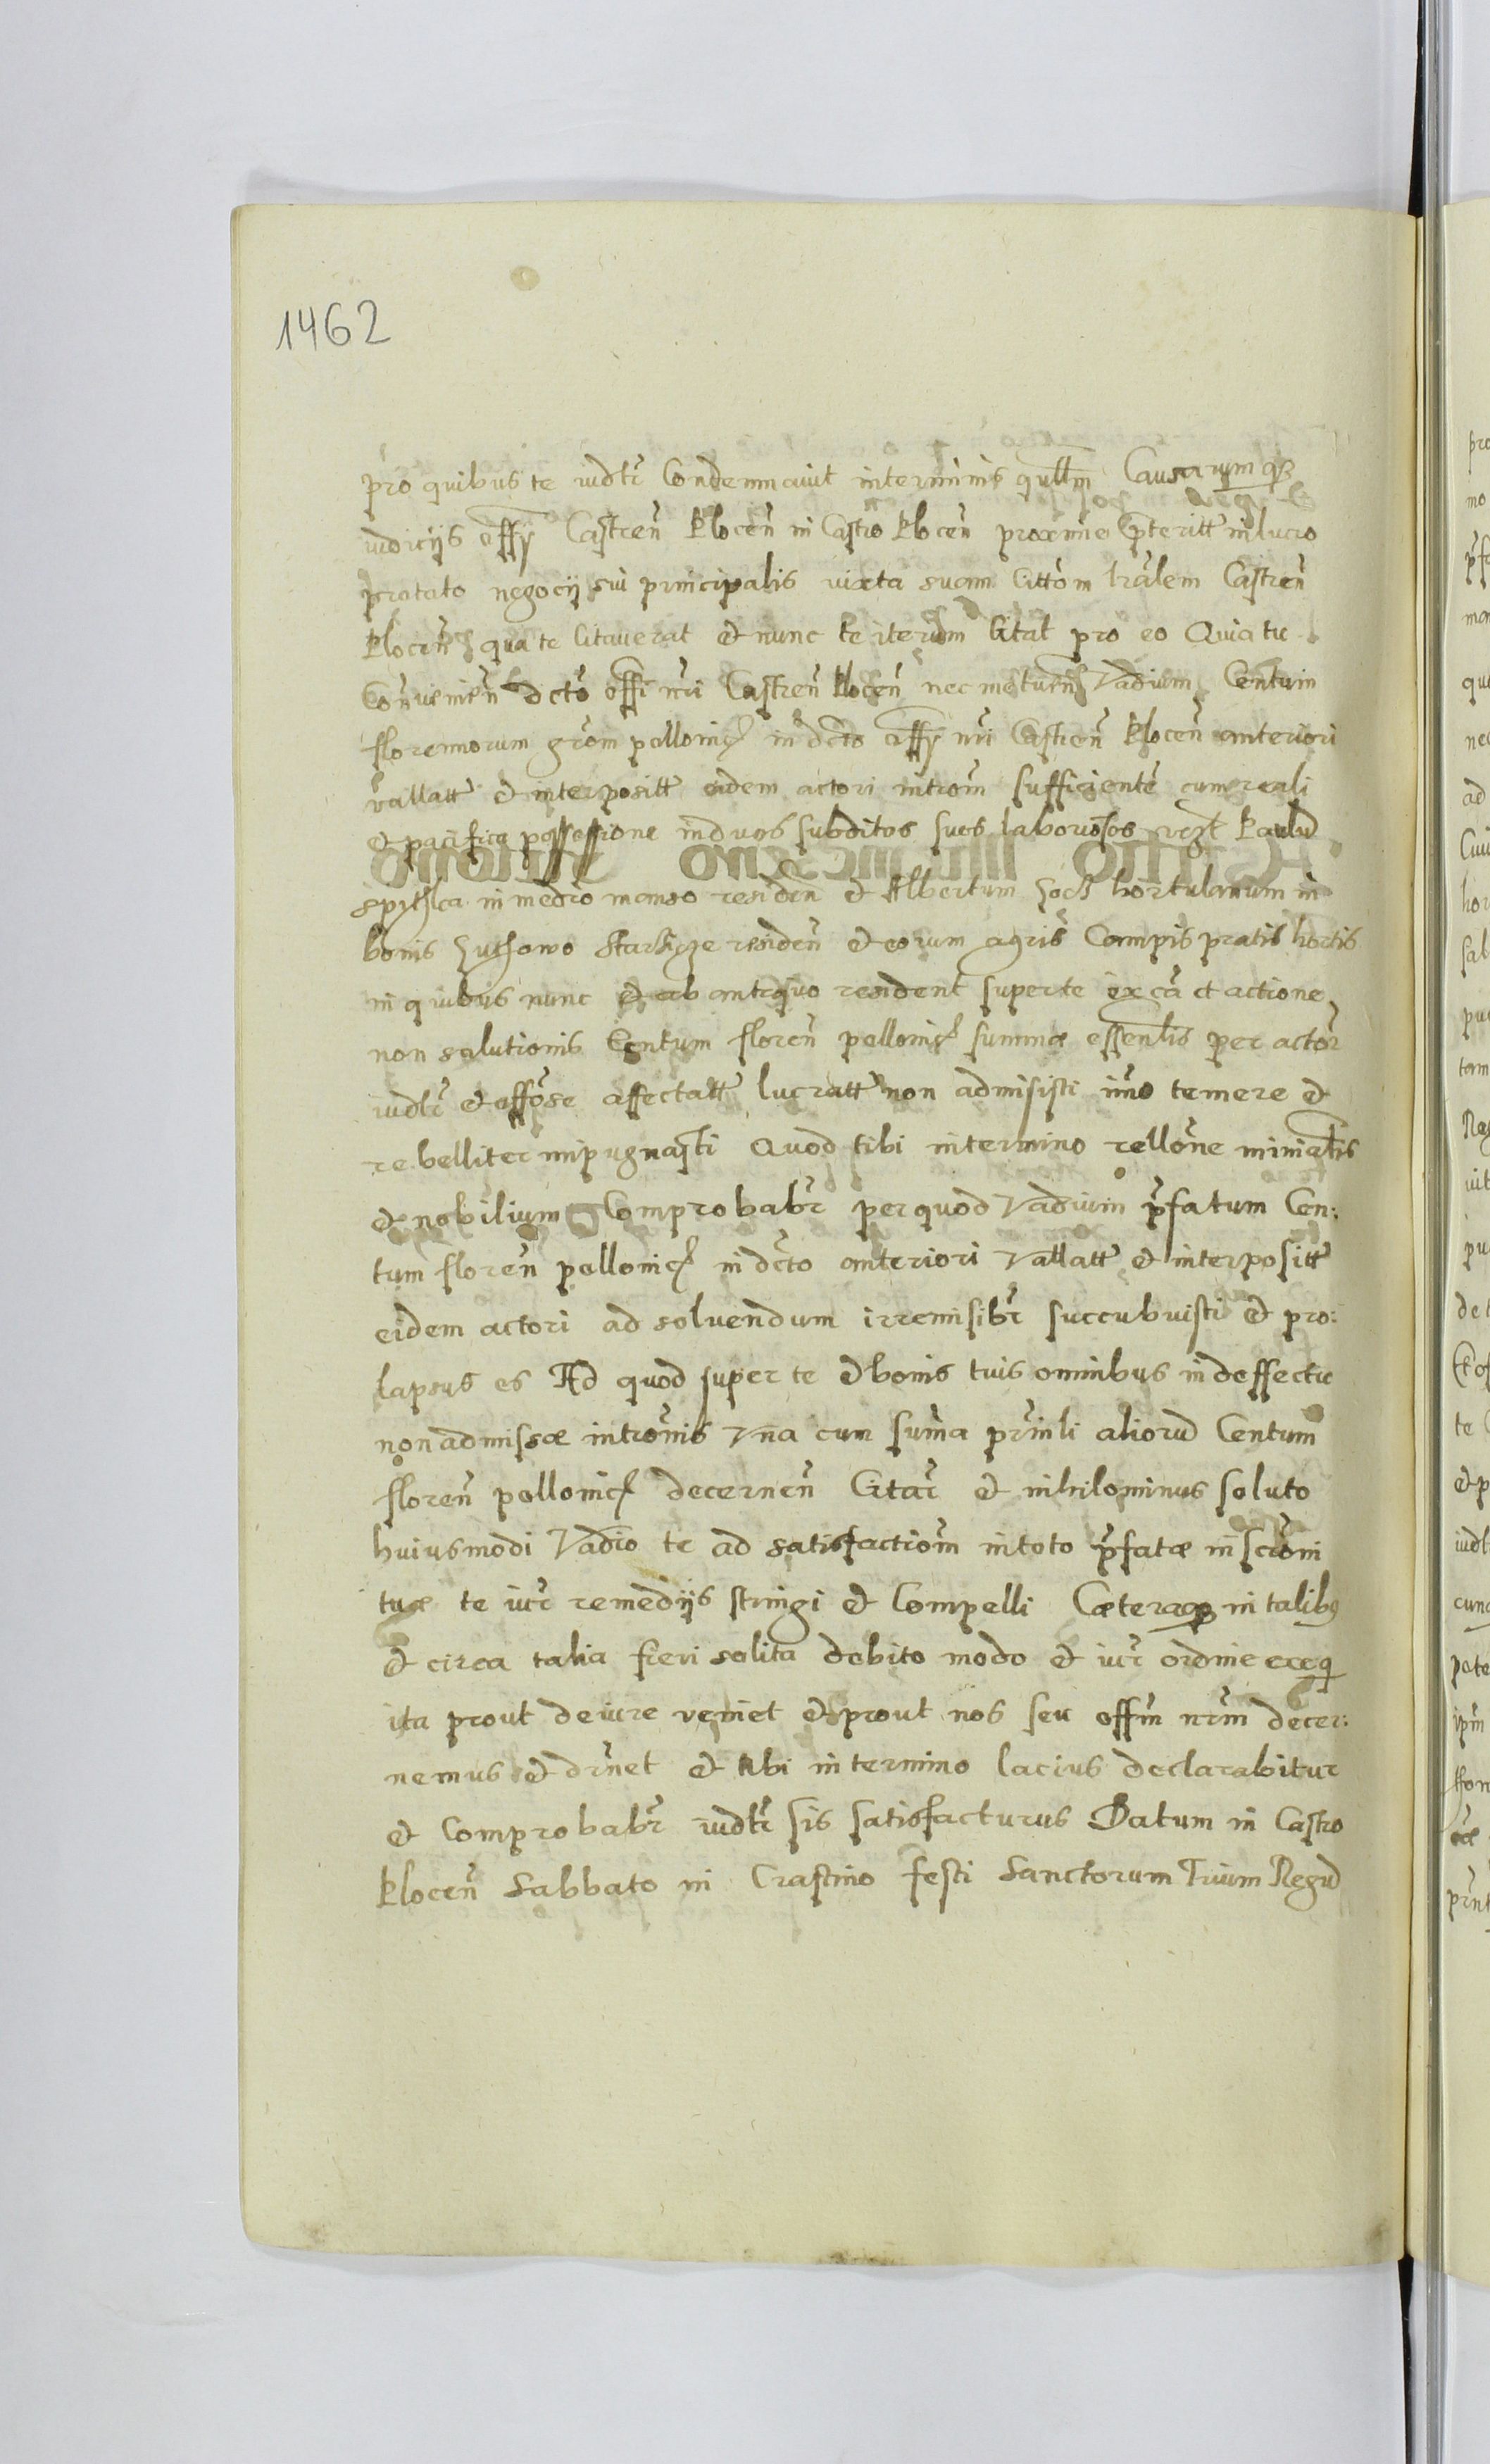 1462
pro quibus te iudtr Condemnavit in terminis qurllm Causarumq3
iudicijs offy Castren̄ Plocen̄ in Castro Plocen̄ proxime pteritt in lucro
protato negocij sui principalis iuxta suam Cittom̄ lrālem Castren̄
Plocen̄ qua te Citaverat et nunc te iterum Citat pro eo Quia tu
Convenien̄ dcto offi nrī Castren̄ Plocen̄ nec metuen̄ Vadium Centum
florennorum grom̄ pollonic in dcto offy nrī Castren̄ Plocen̄ anteriori
vallatt et interpositt eidem actori introm̄ sufficiente cum reali
et pacifica possessione in duos subditos suos laboriosos vczt Paulu
in medio manso residen̄ et Albertum Soch hortulanum in
bonis residen̄ et eorum agris Campis pratis hortis
in quibus nunc et ab antiquo resident super te ex cā et actione
non solutionis Centum floren̄ pollonic summæ essentlis per actor̄
iudtr et offose affectatt lucratt non admisisti imo temere et
rebelliter impugnasti Quod tibi in termino rellone ministlis
et nobilium Comprobabr̄ per quod Vadium p̄fatum Cen:
tum floren̄ pollonic in dcto anteriori Vallatt et interpositt
eidem actori ad solvendum irremisibr̄ succubuisti et pro:
lapsus es Ad quod super te et bonis tuis omnibus in deffectu
non admissæ intromis Vna cum sum̄a prinli alioru Centum
floren̄ pollonic decernen̄ Citar̄ et nihilominus soluto
huiusmodi Vadio te ad satisfactiom̄ in toto p̄fatæ inscrōni
tuæ te iur̄ remedijs stringi et Compelli Cæteraq3 in talibus
et circa talia fieri solita debito modo et iur̄ ordine exeq
ita prout de iure veniet et prout nos seu offm̄ nrm̄ decer:
nemus et drnet et tibi in termino lacius declarabitur
et Comprobabr̄ iudtr sis satisfacturus Datum in Castro
Plocen̄ Sabbato in Crastino festi Sanctorum Trium Regu